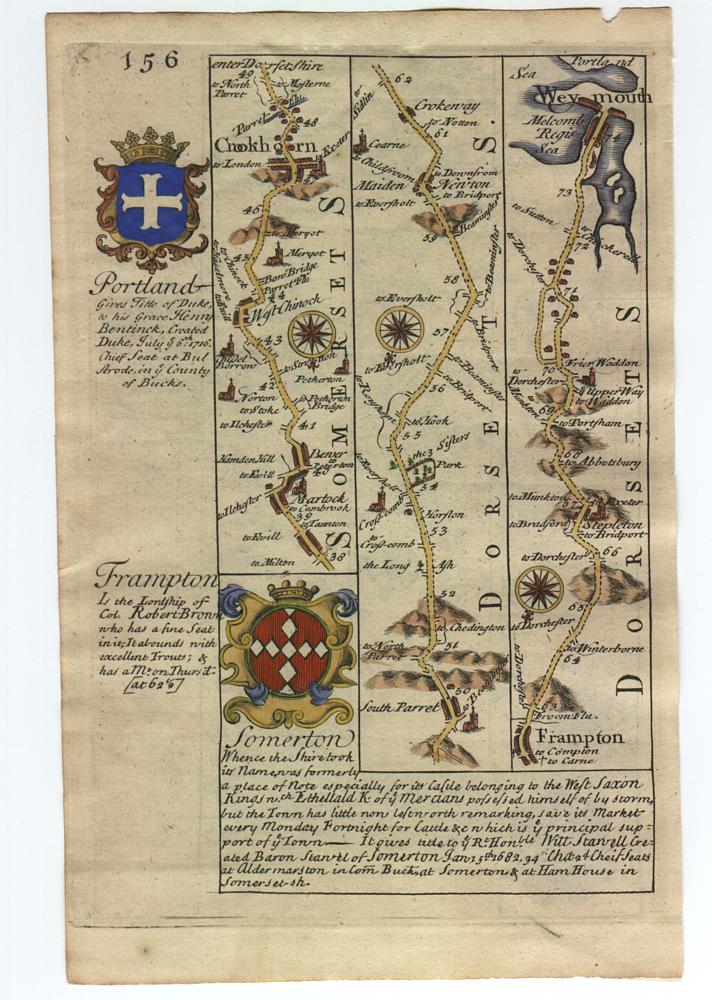 156
Portland
Gives Title of Duke,
to his Grace Henry
Bentinck, Created
Duke, July ye 6th 1716.
Chief Seat at Bul
Strode, in ye County
of Bucks.
Frampton
Is the Lordship of
Col. Robert Brown
who has a fine Seat
in it; It abounds with
excellent Trouts; &
has a Mt on Thursd.
[at 62'2]
enter Dorsetshire
49
to North
Parret
to Mosterne
Parret flu
48
Crookhorn
to London
to Exeter
47
46
to Meryot
45
Meryot
to Chinock
Bow Bridge
Parret Flu
44
West Chinock
43
to Stratton
Petherton
42
Norton
to Stoke
to Petherton
Bridge
to Ilchester
41
Hamden Hill
to Evill
40
Martock
to Ilchester
to Cambrook
39
to Taunton
to Evill
38
to Milton
SOMERSETS
62
to Sidlin
Crokeway
to Notton
61
Cearne
to Childfroom
to Downfrom
Maiden Newton
to Bridport
to Eversholt
59
to Beaminster
58
to Beaminster
to Eversholt
57
to Bridport
to Eversholt
to Beaminster
56
to Bridport
to Hook
55
the 3 Sisters
to Eversholt
Park
54
Cross-comb
Horston
53
to
Cross-comb
the Long Ash
52
to Chedington
to North
Parret
51
50
South Parret
to Beaminster
DORSETS
Portland
Sea
Weymouth
Melcomb
Regis
Sea
74
73
to Sutton
to Chickerell
72
to Dorchester
71
70
Frier Waddon
to
Dorchester
Upper Way
to Waddon
69
to Portsham
68
to Abbotsbury
to Munkton
to Exeter
67
Stepleton
to Bradford
to Bridport
to Dorchester
66
65
to Dorchester
to Winterborne
64
to Dorchester
63
Froom Flu.
Frampton
to Compton
to Carne
DORSETS
Somerton
Whence the Shire took
its Name, was formerly
a place of Note especially for its Castle belonging to the West Saxon
Kings wch Ethellald K of ye Mercians possessed himself of by storm,
but the Town has little now left worth remarking, save its Market
every Monday Fortnight for Cattle &c which is ye principal sup=
port of ye Town — It gives title to ye Rt Honble Will Stawell Cre=
ated Baron Stawel of Somerton Jan 15th 1682, 34th Cha 2d Cheif Seats
at Aldermarston in Com Buck, at Somerton & at Ham House in
Somerset-sh.